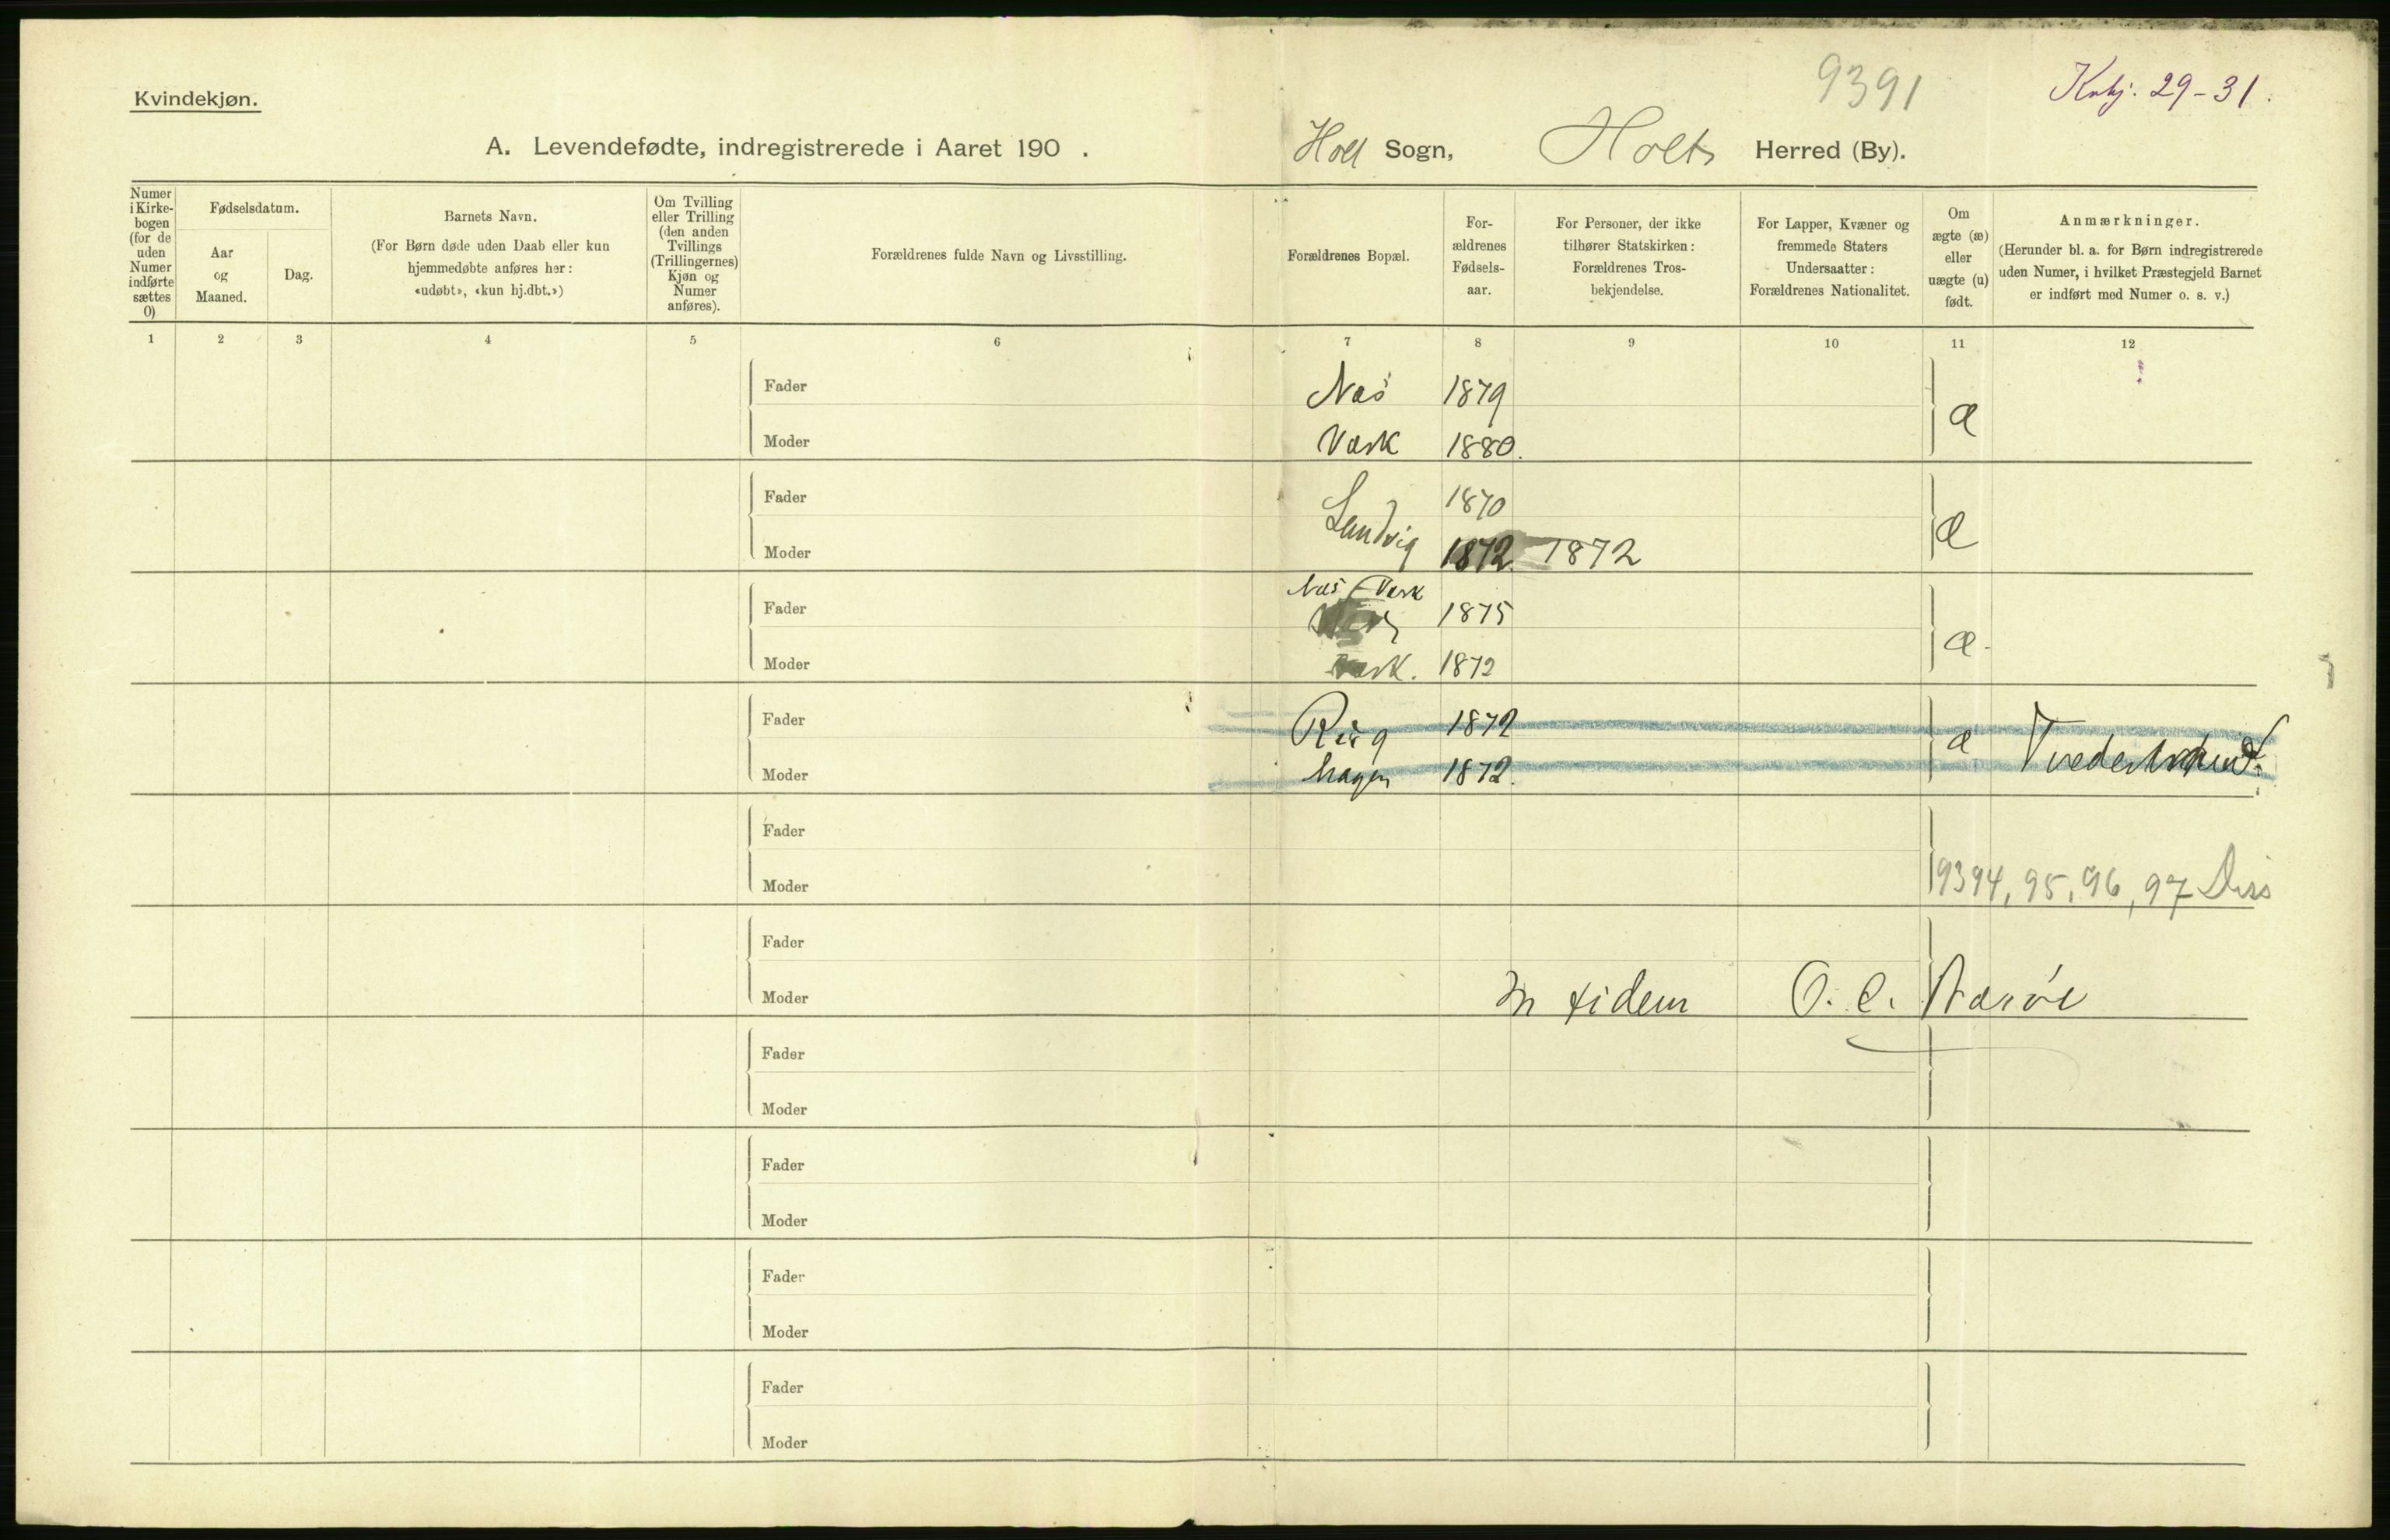 Kvindekjøn.
9391
Kvkj. 29-31.
A. Levendefødte, indregistrerede i Aaret 190 .
Holt Sogn, Holts Herred (By).
Numer i Kirkebogen (for de uden Numer indførte sættes 0)
Fødselsdatum.
Aar og Maaned.
Dag.
Barnets Navn.
(For Børn døde uden Daab eller kun hjemmedøbte anføres her: «udøbt», «kun hj.dbt.»)
Om Tvilling eller Trilling (den anden Tvillings (Trillingernes) Kjøn og Numer anføres).
Forældrenes fulde Navn og Livsstilling.
Forældrenes Bopæl.
For-
ældrenes
Fødsels-
aar.
For Personer, der ikke
tilhører Statskirken:
Forældrenes Tros-
bekjendelse.
For Lapper, Kvæner og
fremmede Staters
Undersaatter:
Forældrenes Nationalitet.
Om
ægte (æ)
eller
uægte (u)
født.
Anmærkninger.
(Herunder bl. a. for Børn indregistrerede
uden Numer, i hvilket Præstegjeld Barnet
er indført med Numer o. s. v.)
1 2 3 4 5 6 7 8 9 10 11 12
Fader Næs 1879
æ
Moder Værk 1880.
Fader 1870
Sandvig æ
Moder 1872. 1872
Næs Værk
Fader 1875
æ
Moder Værk. 1872
Fader 1872
æ Tvedestrand.
Moder hagen 1872.
Fader
Moder 9394, 95, 96, 97 Diss
Fader
Moder In fidem O. C.
Fader
Moder
Fader
Moder
Fader
Moder
Fader
Moder